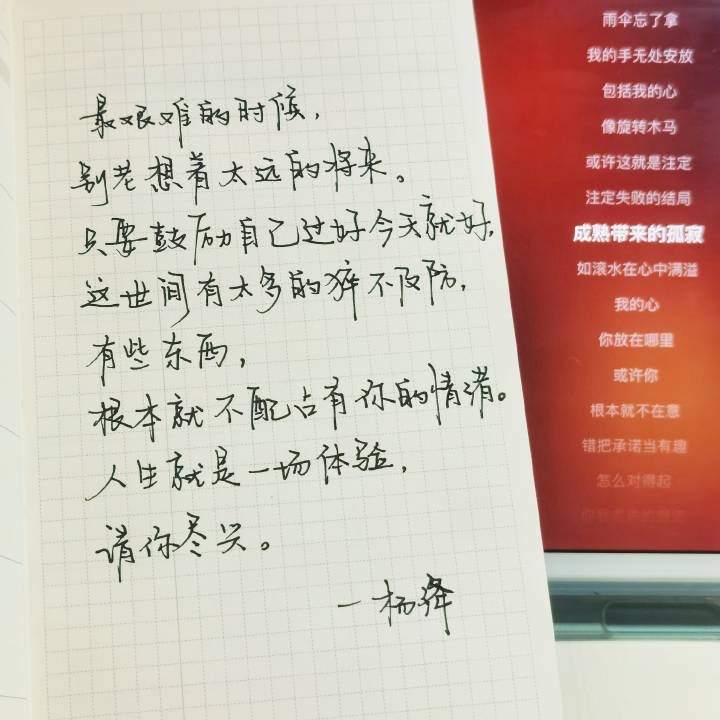 最艰难的时候,
别老想着太远的将来。
只要鼓励自己过好今天就好,
这世间有太多的猝不及防,
有些东西,
根本就不配占有你的情绪。
人生就是一场体验,
请你尽兴。
一杨绛
雨伞忘了拿
我的手无处安放
包括我的心
像旋转木马
或许这就是注定
注定失败的结局
成熟带来的孤寂
如滚水在心中满溢
我的心
你放在哪里
或许你
根本就不在意
错把承诺当有趣
怎么对得起